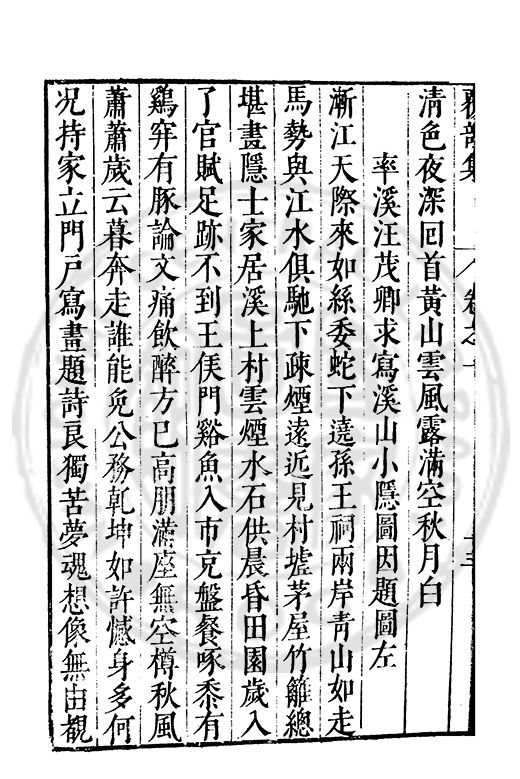 覆瓿集 卷之
清色夜深回首黃山雲風露滿空秋月白
率溪汪茂卿求寫溪山小隱圖因題圖左
漸江天際來如絲委蛇下遶孫王祠兩岸青山如走
馬勢與江水俱馳下疎煙遠近見村墟茅屋竹籬總
堪畫隱士家居溪上村雲煙水石供晨昏田園歲入
了官賦足跡不到王侯門谿魚入市充盤餐啄黍有
鷄穽有豚論文痛飲醉方已高朋滿座無空樽秋風
蕭蕭歲云暮奔走誰能免公務乾坤如許憾身多何
况持家立門戶寫畫題詩良獨苦夢魂想像無由覩